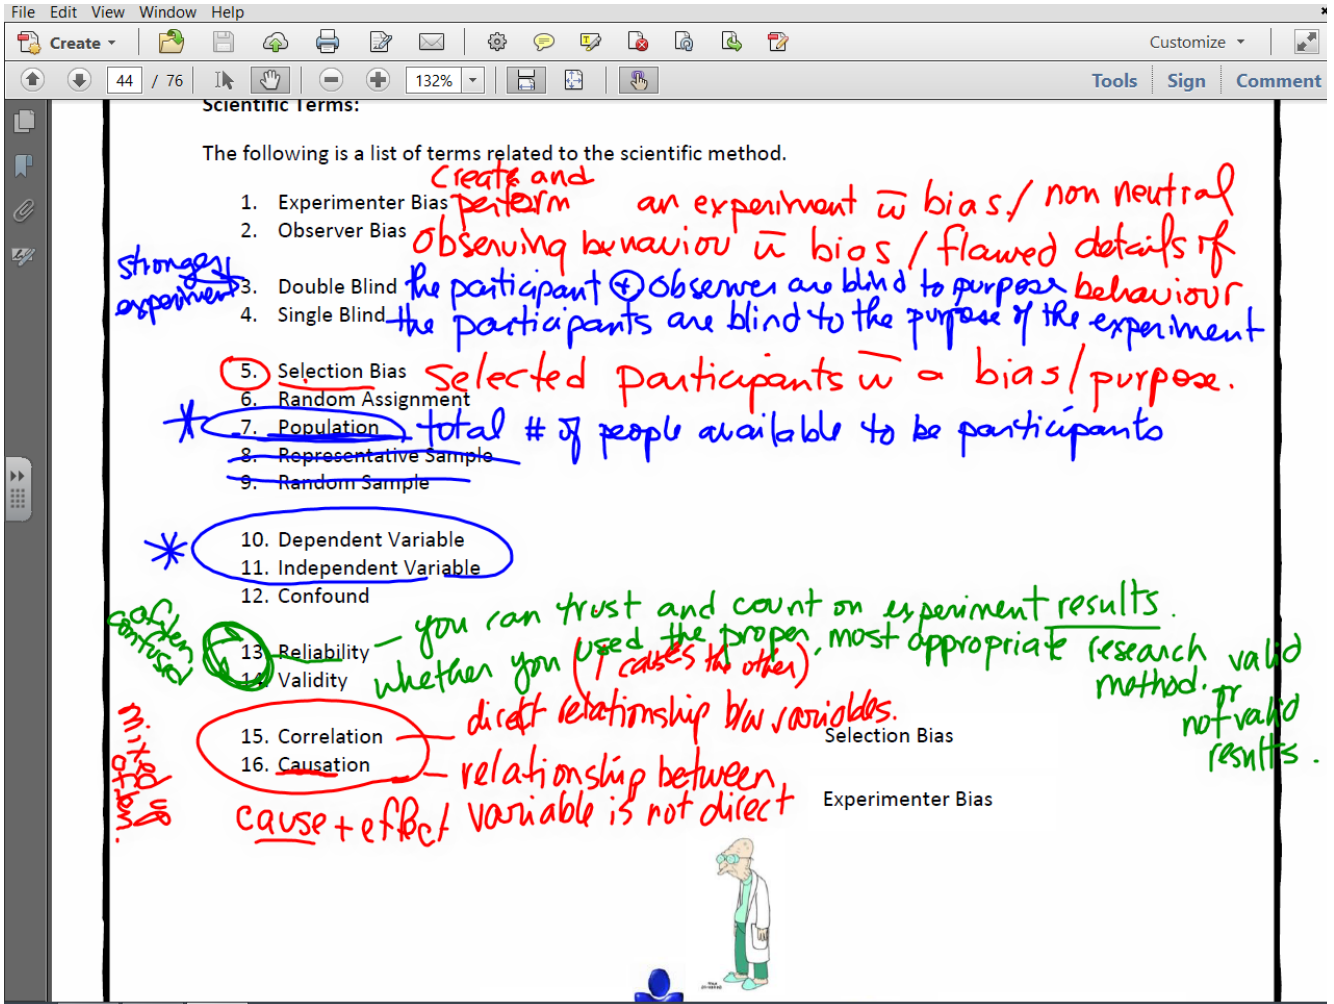 File Edit View Window Help
Create
Customize
44 / 76
132%
Tools Sign Comment
Scientific Terms:
The following is a list of terms related to the scientific method.
create and
1. Experimenter Bias perform an experiment w̄ bias / non neutral
2. Observer Bias observing behaviour w̄ bias / flawed details of
behaviour
stronger
experiment
3. Double Blind the participant + observer are blind to purpose
4. Single Blind the participants are blind to the purpose of the experiment
5. Selection Bias selected participants w̄ a bias/purpose.
6. Random Assignment
7. Population total # of people available to be participants
8. Representative Sample
9. Random Sample
10. Dependent Variable
11. Independent Variable
12. Confound
often
confused
13. Reliability – you can trust and count on experiment results.
14. Validity whether you used the proper, most appropriate research
method.
valid
or
not valid
results.
(1 causes the other)
mixed up
often.
15. Correlation – direct relationship b/w variables.
16. Causation – relationship between
variable is not direct
cause + effect
Selection Bias
Experimenter Bias